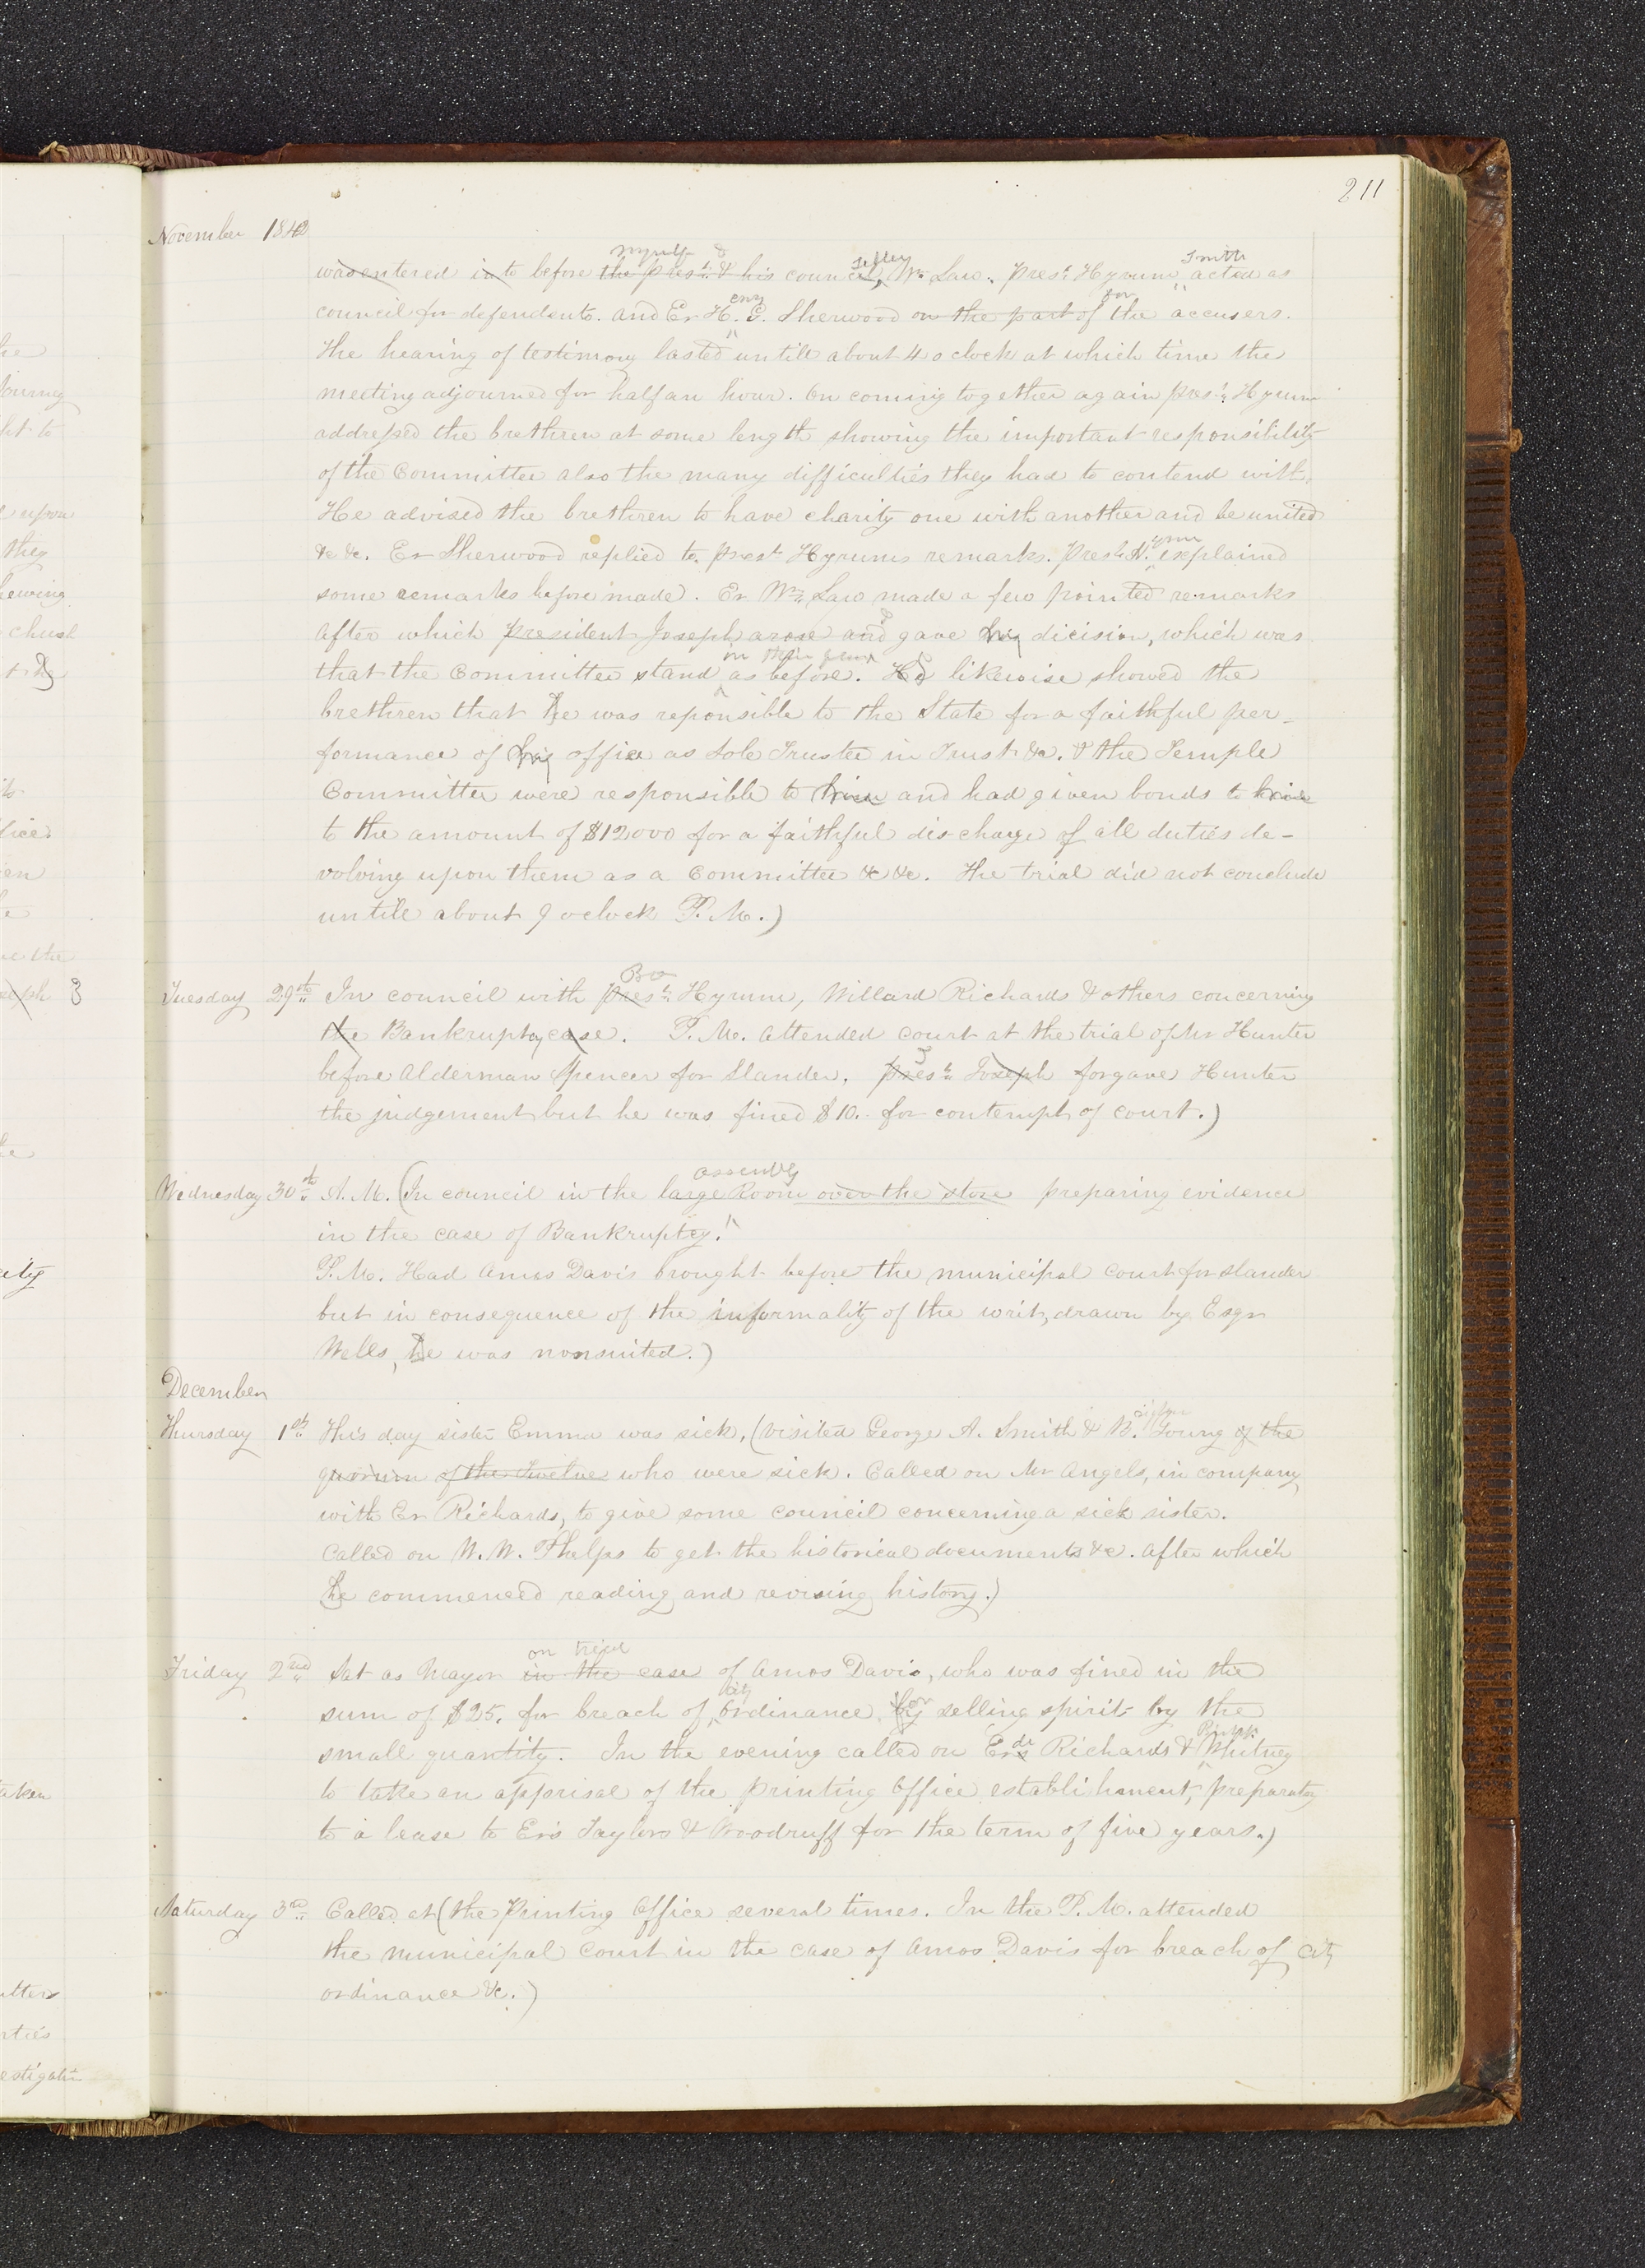 211
November 1842
myself & sellor Smith
was entered in to before the Prest. & his council, Wm. Law. Prest. Hyrum acted as
eny for
council for defendents. and Er H. G. Sherwood on the part of the accusers.
The hearing of testimony lasted untill about 4 o clock at which time the
meeting adjourned for half an hour. On coming together again Prest. Hyrum
addressed the brethren at some length showing the important responsibility
of the Committee also the many difficulties they had to contend with.
He advised the brethren to have charity one with another and be united
yrum
&c &c. Er Sherwood replied to Prest Hyrums remarks. Prest H. explained
some remarks before made. Er Wm. Law made a few pointed remarks
After which President Joseph arose and gave his dicision, which was
in their place
that the Committee stand as before. He likewise showed the
brethren that he was reponsible to the State for a faithful per-
formance of his office as Sole Trustee in Trust &c. & the Temple
Committee were responsible to him and had given bonds to him
to the amount of $12000 for a faithful discharge of all duties de-
volving upon them as a Committee &c &c. The trial did not conclude
untill about 9 oclock P.M.)
Bro
Tuesday 29th In council with Prest. Hyrum, Willard Richards & others concerning
the Bankruptcy case. P.M. Attended court at the trial of Mr Hunter
I
before Alderman Spencer for Slander. Prest. Joseph forgave Hunter
the judgement but he was fined $10.- for contempt of court.)
assembly
Wednesday 30th A.M. (In council in the large Room over the store preparing evidence
in the case of Bankruptcy.
P.M. Had Amos Davis brought before the municipal court for slander
but in consequence of the informality of the writ, drawn by Esqr
Wells, he was nonsuited.)
December
righam
Thursday 1st This day sister Emma was sick, (visited George A. Smith & B. Young of the
quorum of the Twelve who were sick. Called on Mr Angels, in company
with Er Richards, to give some council concerning a sick sister.
Called on W. W. Phelps to get the historical documents &c. After which
he commenced reading and revising history.)
on trial
Friday 2nd Sat as Mayor in the case of Amos Davis, who was fined in the
city for
sum of $25. for breach of Ordinance by selling spirit by the
Bishop
small quantity. In the evening called on Ers Richards & Whitney
to take an apprisal of the printing Office establishment, preparatory
to a lease to Ers Taylor & Woodruff for the term of five years.)
Saturday 3rd Called at (the Printing Office several times. In the P.M. attended
the municipal Court in the case of Amos Davis for breach of City
ordinance &c.)